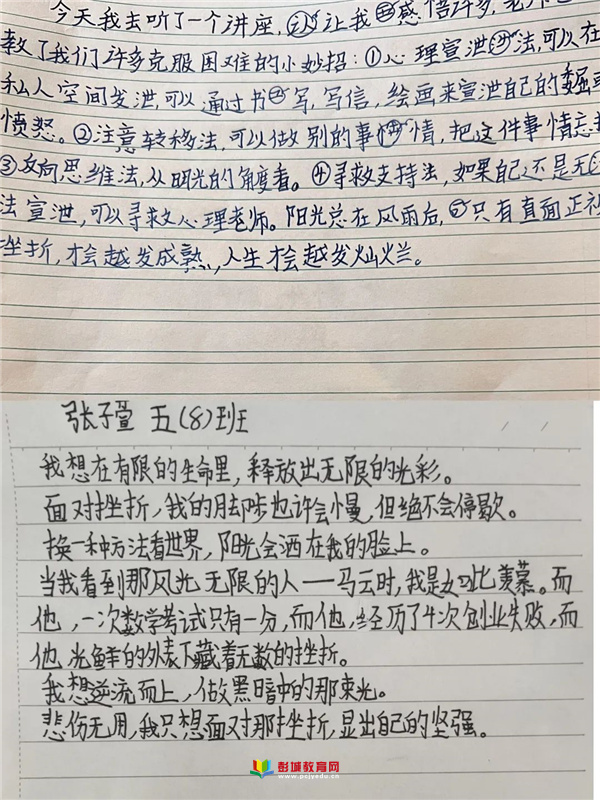 今天我去听了一个讲座,让我感悟许多,老师
教了我们许多克服困难的小妙招:①心理宣泄法,可以在
私人空间发泄,可以通过书写,写信,绘画来宣泄自己的委屈或
愤怒。②注意转移法,可以做别的事情,把这件事情忘
③反向思维法,从明光的角度看。④寻求支持法,如果自己还是无
法宣泄,可以寻求心理老师。阳光总在风雨后,只有直面正视
挫折,才会越发成熟,人生才会越发灿烂。
张子萱 五(8)班
我想在有限的生命里,释放出无限的光彩。
面对挫折,我的脚步也许会慢,但绝不会停歇。
换一种方法看世界,阳光会洒在我的脸上。
当我看到那风光无限的人——马云时,我是如此羡慕。而
他,一次数学考试只有一分,而他,经历了4次创业失败,而
他光鲜的外表下藏着无数的挫折。
我想逆流而上,做黑暗中的那束光。
悲伤无用,我只想面对那挫折,显出自己的坚强。
彭城教育网
www.pcjyedu.cn